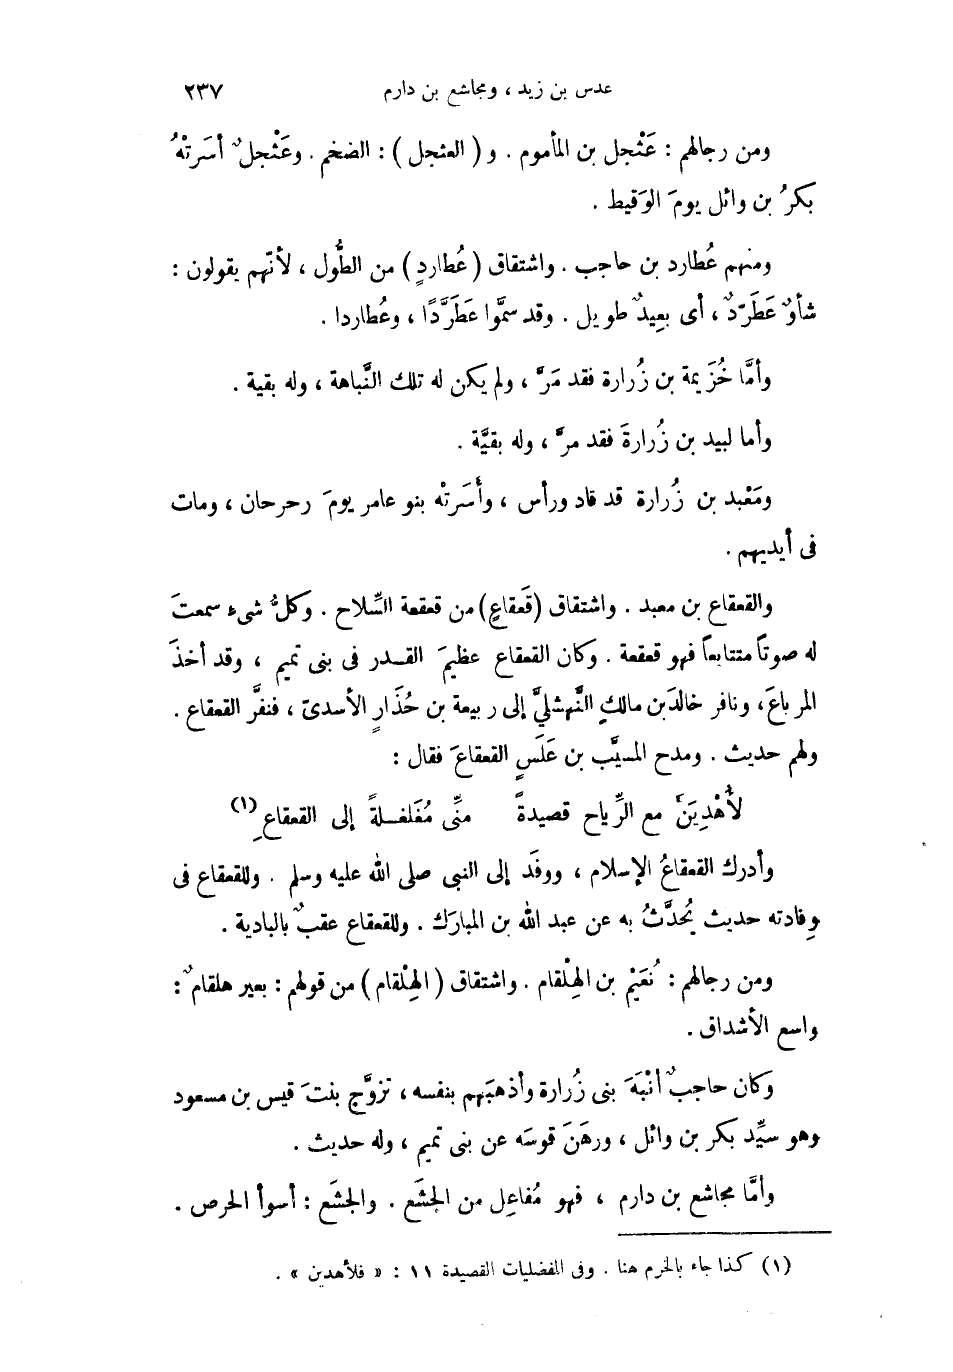 عدس بن زيد ، ومجاشع بن دارم ٢٣٧
ومن رجالهم : عَثْجل بن المأموم . و ( العثجل ) : الضخم . وعَثْجلٌ أسَرتْهُ
بكرُ بن وائل يومَ الوَقيط .
ومنهم عُطارد بن حاجب . واشتقاق ( عُطاردٍ ) من الطُّول ، لأنّهم يقولون :
شأوٌ عَطَرّدٌ ، أى بعِيدٌ طويل . وقد سمَّوا عَطَرَّدًا ، وعُطاردا .
وأمَّا خُزَيمة بن زُرارة فقد مَرَّ ، ولم يكن له تلك النَّباهة ، وله بقية .
وأما لبيد بن زُرارةَ فقد مرَّ ، وله بقيَّة .
ومَعْبد بن زُرارة قد قاد ورأس ، وأَسَرتْه بنو عامر يومَ رحرحان ، ومات
فى أيديهم .
والقعقاع بن معبد . واشتقاق (قَعقاعٍ) من قعقعة السِّلاح . وكلُّ شىء سمعتَ
له صوتاً متتابعاً فهو قعقعة . وكان القعقاع عظيمَ القـدر فى بنى تميم ، وقد أخذَ
المرباعَ، ونافر خالدَبن مالكٍ النَّهشليَّ إلى ربيعة بن حُذَارٍ الأسدىّ ، فنفَّر القعقاع .
ولهم حديث . ومدح المسيَّب بن عَلَسٍ القعقاعَ فقال :
لأُهْدِيَنْ مع الرِّياح قصيدةً منِّى مُغَلغـلةً إلى القعقاعِ (١)
وأدرك القعقاعُ الإسلام ، ووفَد إلى النبى صلى الله عليه وسلم . وللقعقاع فى
وِفادته حديث يُحدَّثُ به عن عبد الله بن المبارَك . وللقعقاع عقبٌ بالبادية .
ومن رجالهم : نُعَيْم بن الهِلْقام . واشتقاق ( الهِلْقام ) من قولهم : بعير هلقامٌ :
واسع الأشداق .
وكان حاجبٌ أنْبَهَ بنى زُرارة وأذهبَهم بنفسه ، تزوَّج بنتَ قيس بن مسعود
وهو سيِّد بكر بن وائل ، ورهَنَ قوسَه عن بنى تميم ، وله حديث .
وأمَّا مجاشع بن دارم ، فهو مُفاعِل من الجشَع . والجشَع : أسوأ الحرص .
(١) كذا جاء بالخرم هنا . وفى المفضليات القصيدة ١١ : « فلأهدين » .